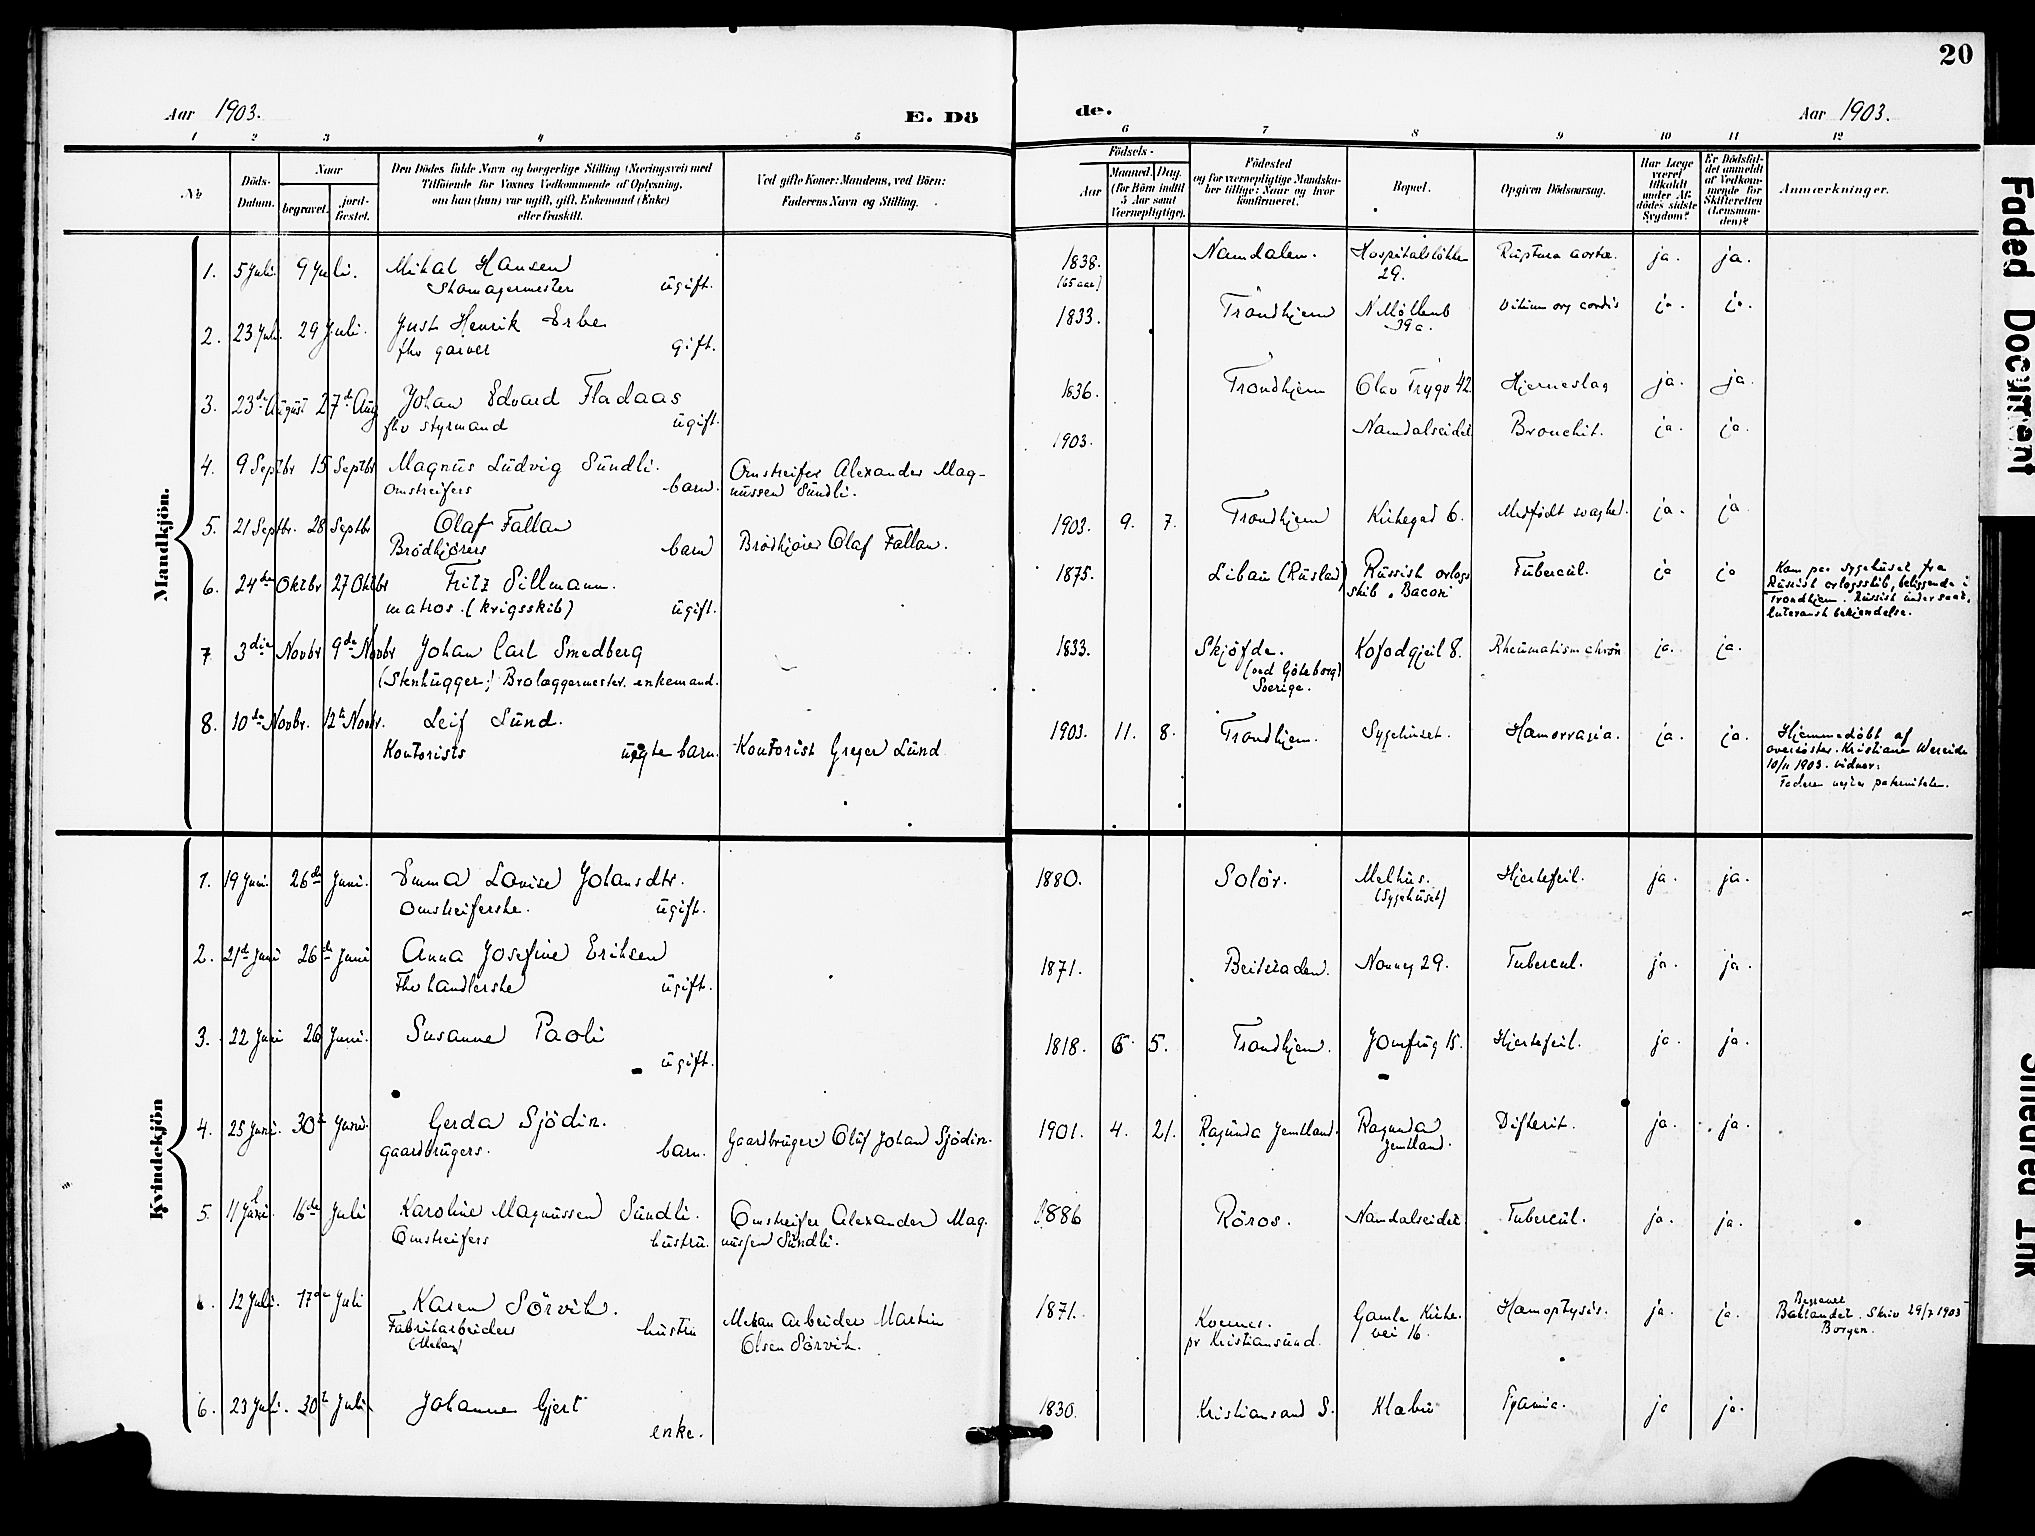 20
Aar 1903.
E. Dö
de.
Aar 1903.
1 2 3 4 5 6 7 8 9 10 11 12
№
Döds-
Datum.
Naar
begravet.
jord-
fæstet.
Den Dödes fulde Navn og borgerlige Stilling (Næringsvei) med
Tilföiende for Voxnes Vedkommende af Oplysning,
om han (hun) var ugift, gift, Enkemand (Enke)
eller fraskilt.
Ved gifte Koner: Mandens, ved Börn:
Faderens Navn og Stilling.
Födsels-
Aar
Maaned.
Dag.
(for Börn indtil
5 Aar samt
Værnepligtige).
Födested
og for værnepligtige Mandska-
ber tillige: Naar og hvor
konfirmeret.
Bopæl.
Opgiven Dödsaarsag.
Har Læge
været
tilkaldt
under Af-
dödes sidste
Sygdom?
Er Dödsfal-
det anmeldt
af Vedkom-
mende for
Skifteretten
(Lensman-
den)?
Anmærkninger.
Mandkjön.
1. 5 Juli 9 Juli. Mikal Hansen 1838. Namdalen. Ruptura aortæ. ja. ja.
Skomagermester ugift. (65 aar) 29.
2. 23 Juli. 29 Juli. Just Henrik Erbe 1833. Trondhjem N. Møllenb Vitium org cordis ja. ja.
fhv garver gift. 39a.
3. 23de August 27de Aug Johan Edvard Fladaas 1836. Trondhjem Olav Trygv 42 Hjerneslag ja. ja.
fhv styrmand ugift.
4. 9 Septbr 15 Septbr Magnus Ludvig Sundli. Omstreifer Alexander Mag- 1903. Namdalseidet Bronchit. ja. ja.
Omstreifers barn. nussen Sundli.
5. 21 Septbr. 28 Septbr Olaf Fallan Brödkjörer Olaf Fallan. 1903. 9. 7. Trondhjem Kirkegad 6. Medfödt svaghed. ja. ja
Brödkjörers barn
6. 24de Oktbr 27 Oktbr Fritz Sillmann. 1875. Libau (Rusland) Russisk orlogs Tubercul. ja ja Kom paa sygehuset fra
matros. (krigsskib) ugift. skib "Bacon" Russisk orlogsskib, beliggende i
Trondhjem. Russisk undersaat,
luteransk bekjendelse.
7 3die Novbr 9de Novbr Johan Carl Smedberg 1833. Skjöfde. Kofodgjeil 8. Rheumatism chron ja. ja.
(Stenhugger;) Brolæggermester. enkemand. (ved Göteborg)
Sverige.
8. 10de Novbr. 12te Novbr. Leif Sund. Kontorist Greger Lund 1903. 11. 8. Trondhjem. Sygehuset. Hæmorragia. ja. ja. Hjemmedöbt af
Kontorists uægte barn. oversöster. Kristiane Wereide
10/11 1903. vidner:
Faderen negter paterniteten.
Kvindekjön
1. 19 Juni. 26de Juni. Emma Lovise Johansdtr. 1880. Solör. Melhus. Hjertefeil. ja. ja.
Omstreiferske. ugift. (Sygehuset)
2. 21de Juni 26de Juni Anna Josefine Eriksen 1871. Beitstaden. Nonneg 29. Tubercul. ja. ja.
Fhv handlerske ugift.
3. 22 Juni 26 Juni. Susanne Paoli 1818. 6 5. Trondhjem. Jomfrug 15. Hjertefeil. ja. ja.
ugift.
4. 25 Juni. 30te Juni. Gerda Sjödin. Gaardbruger Oluf Johan Sjödin. 1901. 4. 21. Ragunda Jemtland. Ragunda Difterit. ja. ja.
gaardbrugers. barn. Jemtland.
5. 11 Juli 16de Juli Karoline Magnussen Sundli. Omstreifer Alexander Mag. 1886 Röros. Namdalseidet Tubercul. ja. ja.
Omstreifers hustru. nussen Sundli.
6. 12 Juli. 17de Juli Karen Sörvik. Mekan arbeider Martin 1871. Kvernes. Gamle Kirke. Hæmoptysis. ja. ja. Begravet
Fabrikarbeiders hustru Olsen Sörvik. pr Kristiansund. vei 16. Baklandet. Skriv 29/7 1903
(Mekan) Borgen.
6. 23 Juli. 30te Juli Johanne Gjert 1830. Kristiansand S. Klæbu Pyæmie. ja ja.
enke.
Faded Document
Smeared Ink